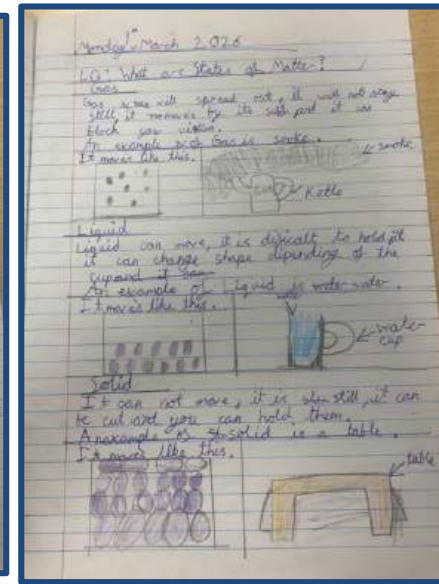 Monday 1st March 2026
LQ: What are States of Matter?
Gas
Gas will spread out, it will not stay
still, it moves by its self and it can
block your vision.
An example of Gas is smoke.
It moves like this.
smoke
Kettle
Liquid
Liquid can move, it is dificalt to hold it
it can change shape dipending of the
cup
An example of Liquid is water.
It moves like this.
water
cup
Solid
It can not move, it is still, it can
be cut and you can hold them.
An example of solid is a table.
It moves like this.
table